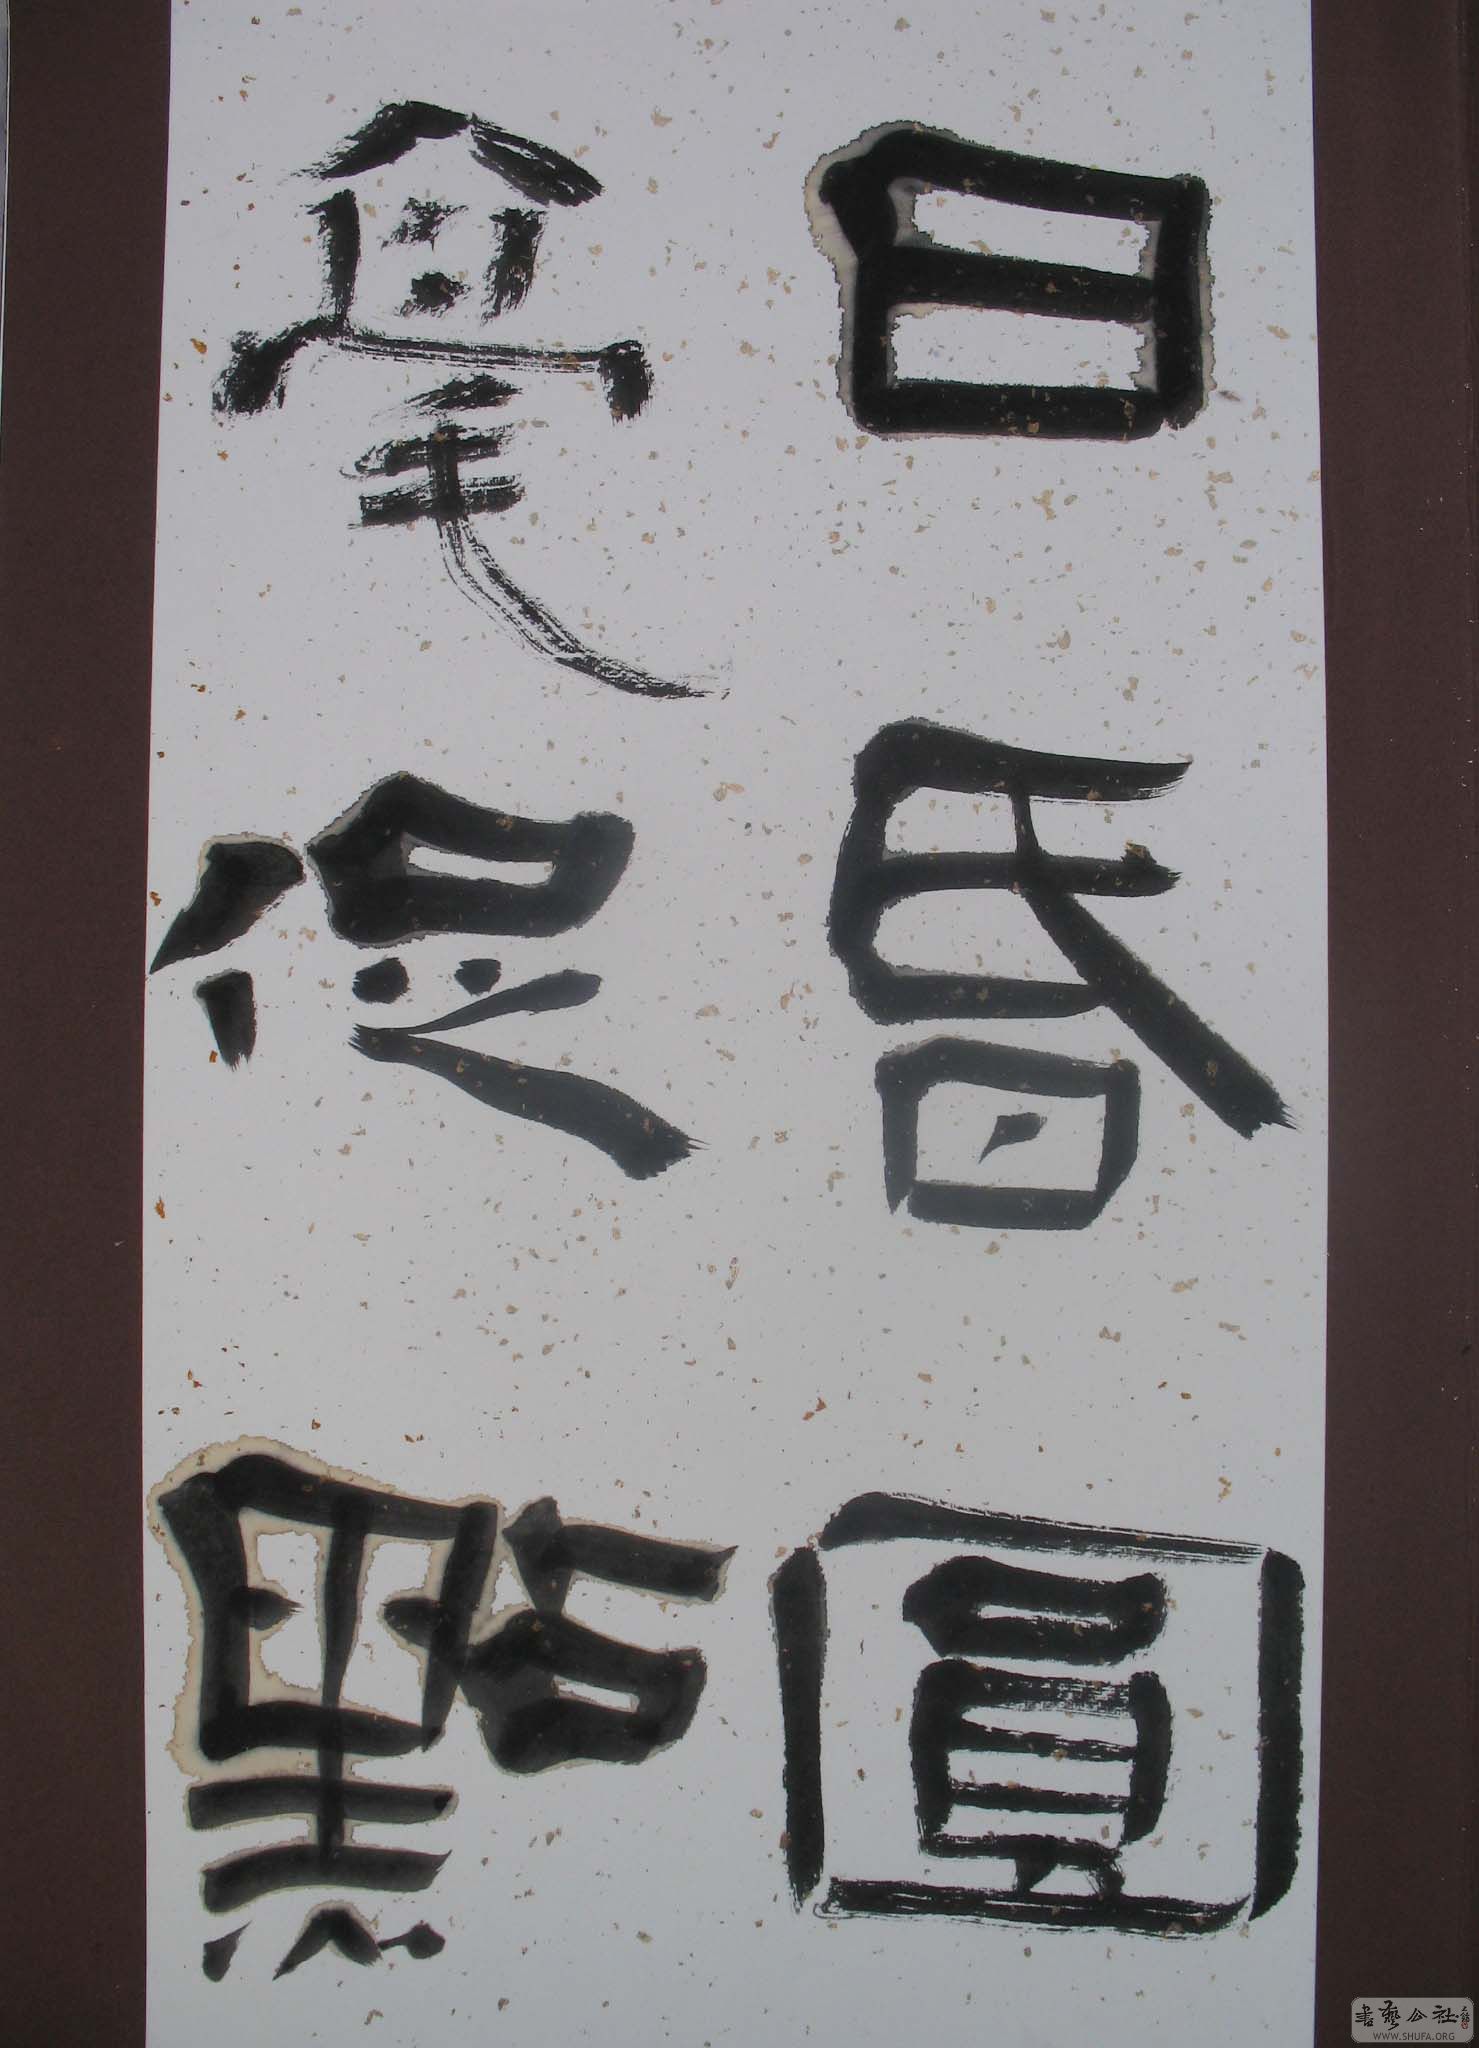 日昏圓
毫點
書藝公社
WWW.SHUFA.ORG